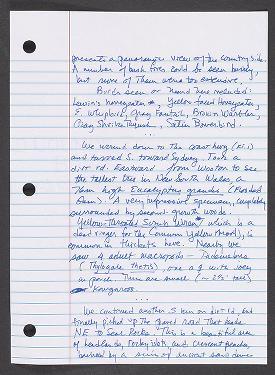 presents a panoramic view of the countryside.
A number of bush fires could be seen burning,
but none of them were too extensive.
Birds seen or heard here included:
Lewin's honeyeater, Yellow-faced Honeyeater,
E. Whipbird, Gray Fantail, Brown Warbler,
Gray Shrike Thrush, Satin Bowerbird.
...
We wound down to the coast hwy (#1)
and turned S. toward Sydney. Took a
dirt rd. Eastward from Wooton to see
the tallest tree in New South Wales, a
high Eucalyptus grandis (Flooded
Gum). A very impressive specimen, completely
surrounded by second-growth woods.
Yellow-Throated Scrub Wren, which is a
dead ringer for the Common Yellowthroat, is
common in thickets here. Nearby we
saw 4 adult macropods -
(Thylogale thetis) one a ♀ with joey
in pouch. They are small
kangaroos.
...
We continued another 5 km on dirt rd. but
finally picked up the paved road that leads
NE to Seal Rocks. This is a beautiful area
of headlands, rocky islets and crescent beaches,
backed by a series of coastal sand dunes